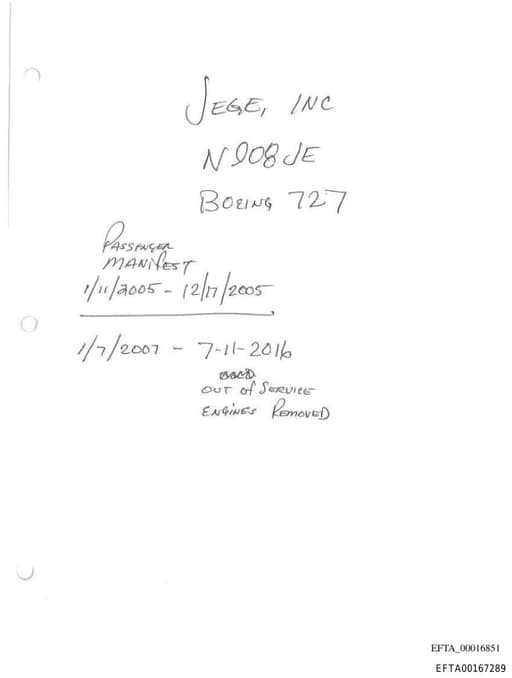 JEGE, INC
N908JE
BOEING 727
PASSENGER
MANIFEST
1/11/2005 - 12/17/2005
1/7/2007 - 7-11-2016
OUT of SERVICE
ENGINES REMOVED
EFTA_00016851
EFTA00167289